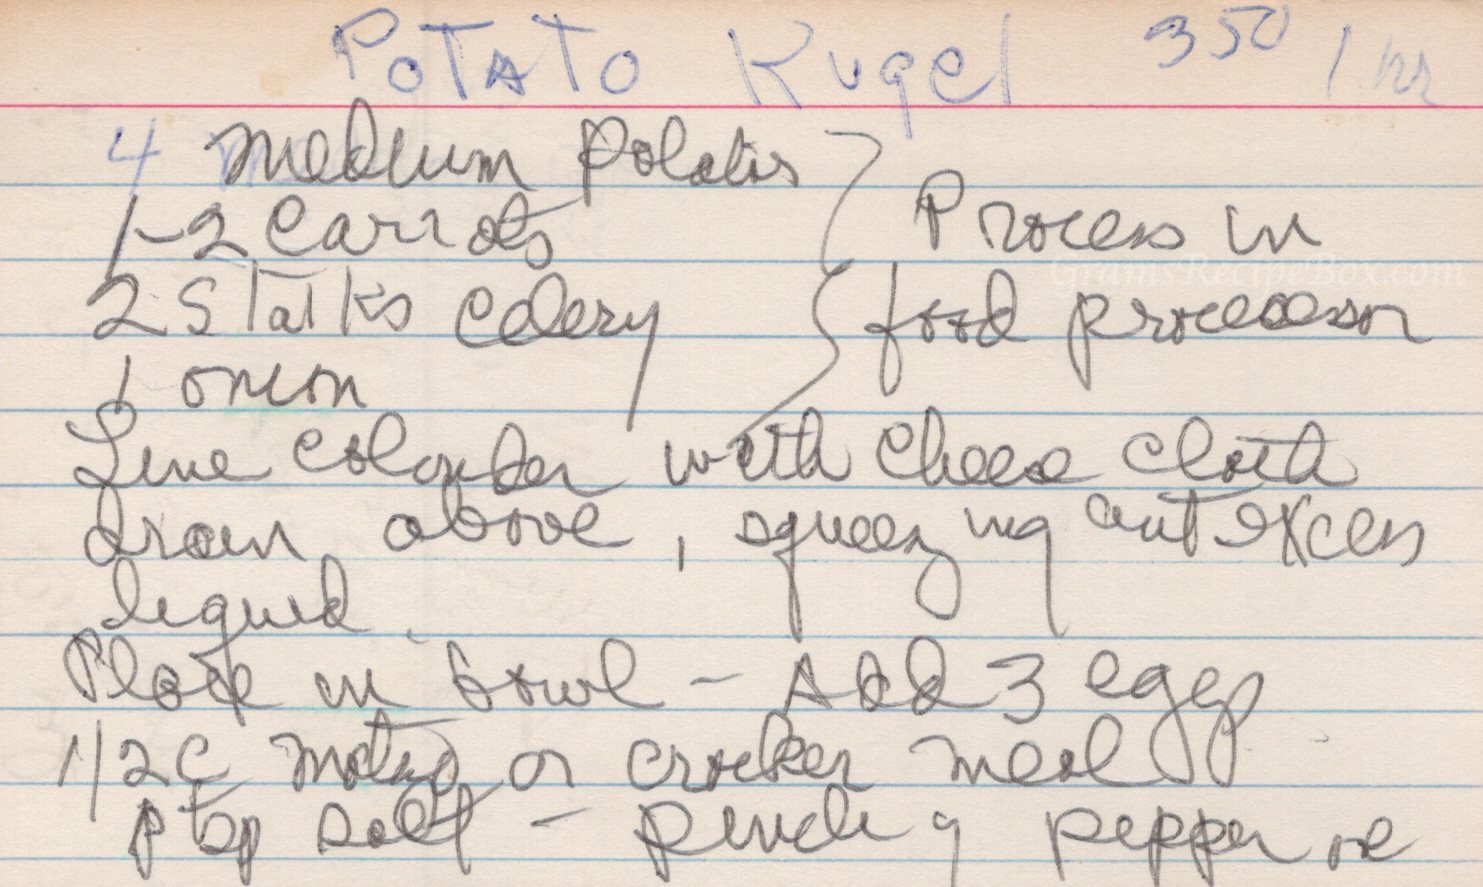 Potato Kugel 350 1 hr
4 medium Potatoes
1-2 Carrots
2 Stalks Celery
1 onion
Process in
food processor
GramsRecipeBox.com
Line colander with Cheese cloth
drain above, squeezing out excess
liquid.
Place in bowl - Add 3 eggs
1/2 C Matzo or cracker meal
tsp salt - pinch of pepper